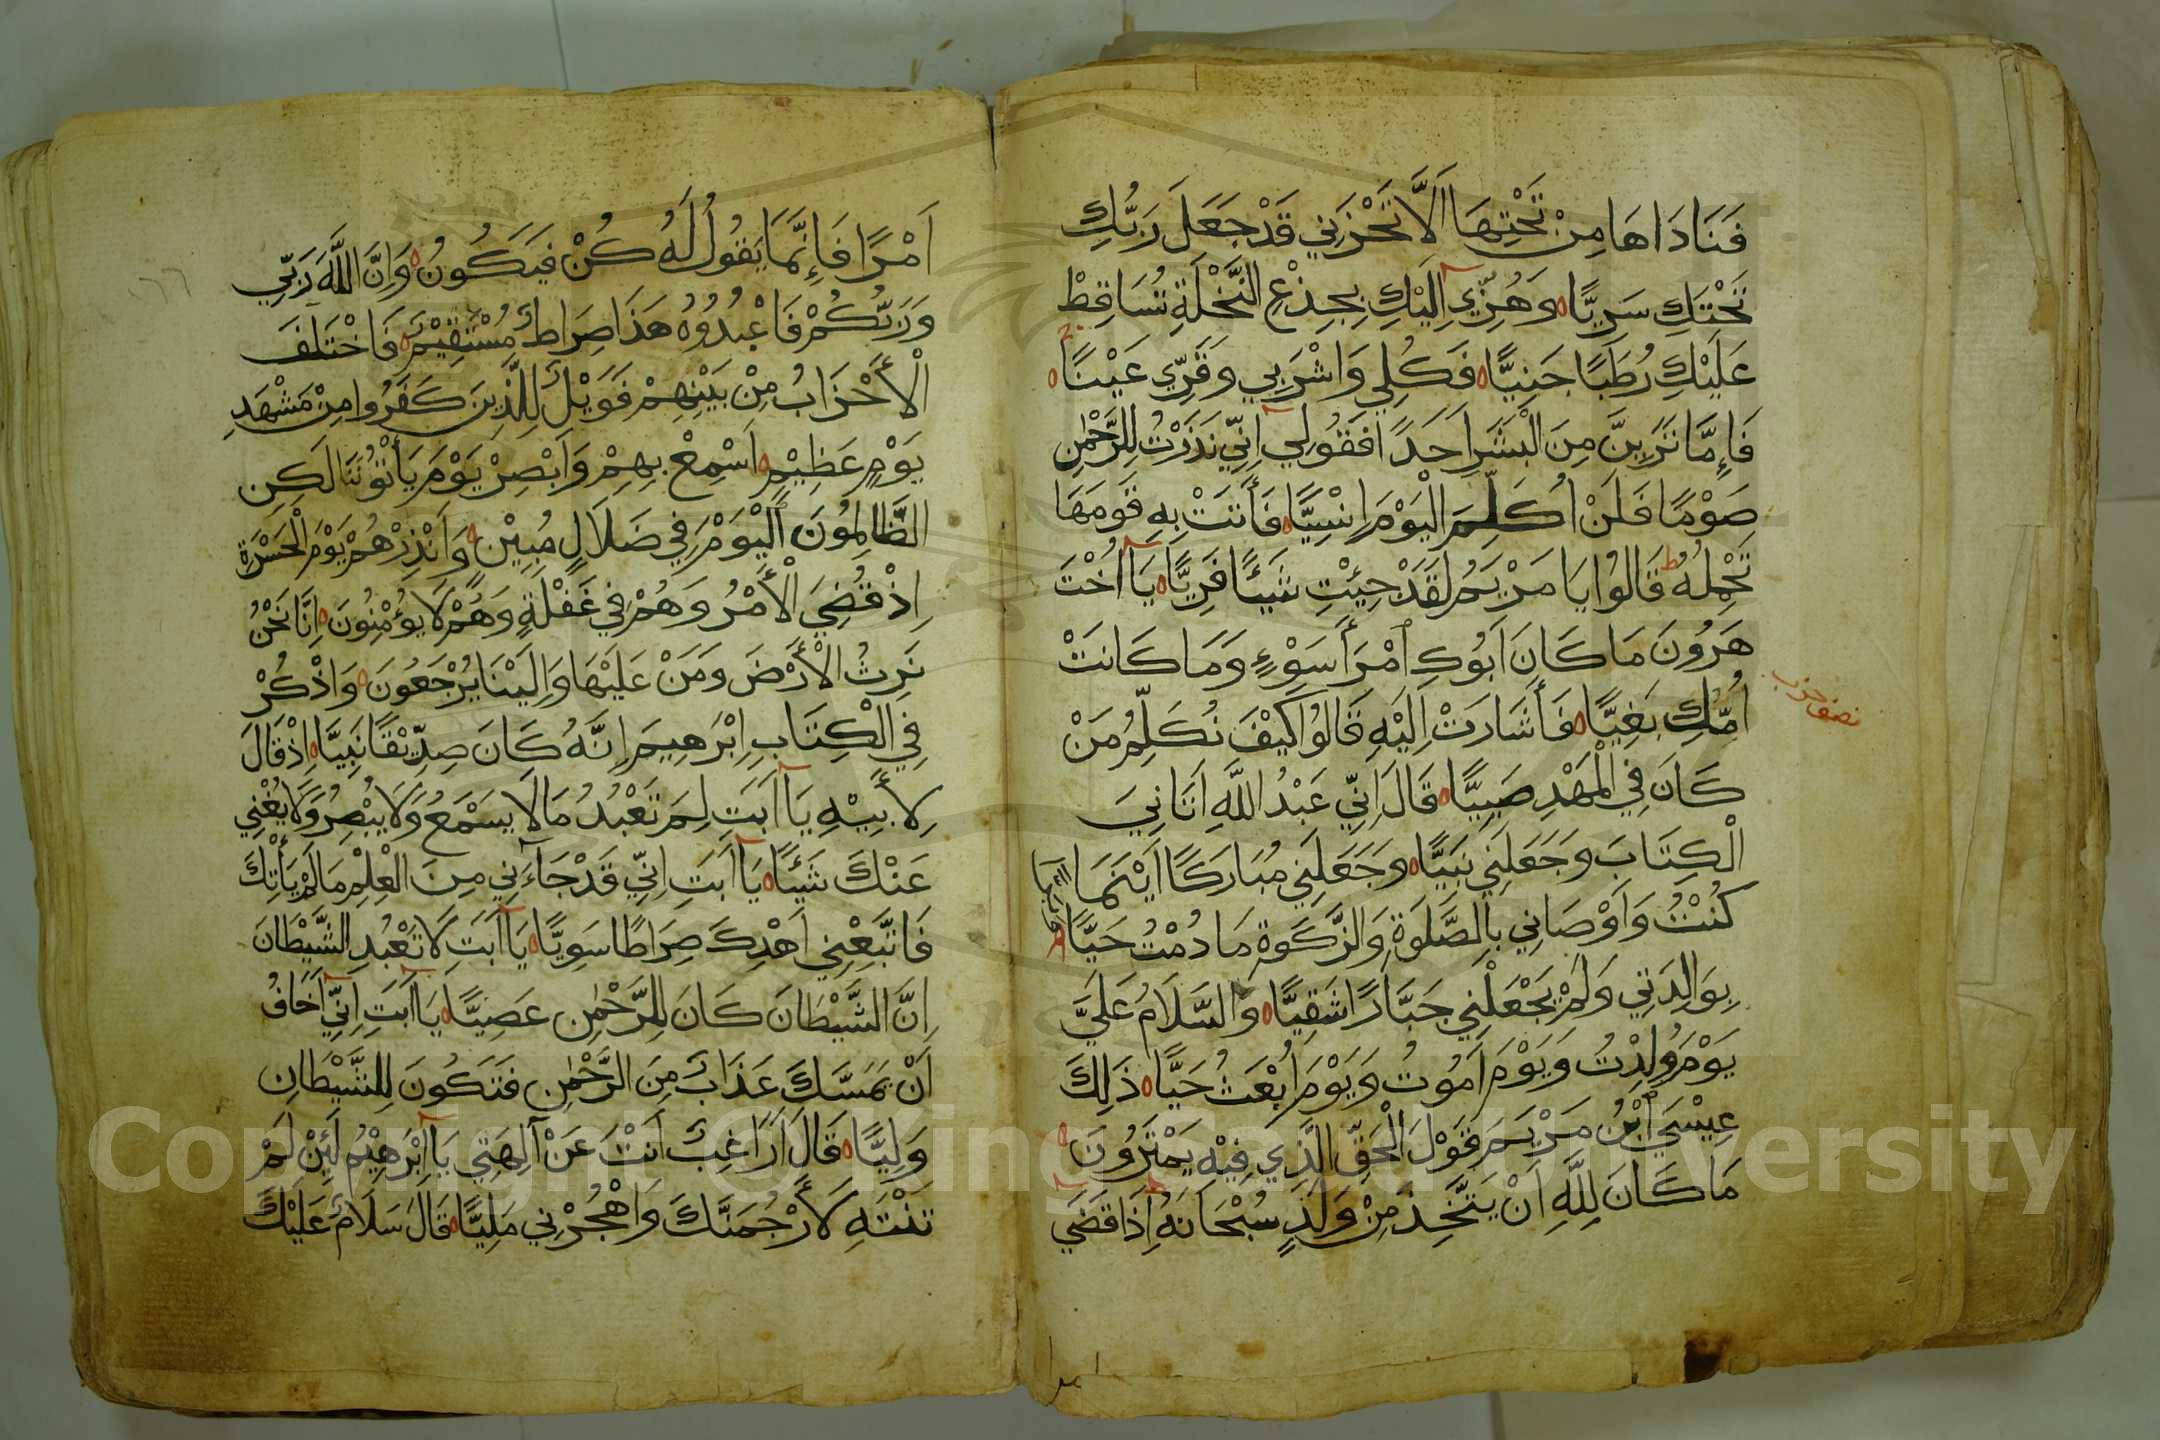 فَنَادَاهَا مِنْ تَحْتِهَا اَلَّا تَحْزَنِي قَدْ جَعَلَ رَبُّكِ
تَحْتَكِ سَرِيًّا وَهُزِّي اِلَيْكِ بِجِذْعِ النَّخْلَةِ تُسَاقِطْ
عَلَيْكِ رُطَبًا جَنِيًّا فَكُلِي وَاشْرَبِي وَقَرِّي عَيْنًا
فَاِمَّا تَرَيِنَّ مِنَ الْبَشَرِ اَحَدًا فَقُولِي اِنِّي نَذَرْتُ لِلرَّحْمٰنِ
صَوْمًا فَلَنْ اُكَلِّمَ الْيَوْمَ اِنْسِيًّا فَأَتَتْ بِهِ قَوْمَهَا
تَحْمِلُهُ قَالُوا يَا مَرْيَمُ لَقَدْ جِئْتِ شَيْئًا فَرِيًّا يَا اُخْتَ
هَرُونَ مَا كَانَ اَبُوكِ امْرَأَ سَوْءٍ وَمَا كَانَتْ
اُمُّكِ بَغِيًّا فَأَشَارَتْ اِلَيْهِ قَالُوا كَيْفَ نُكَلِّمُ مَنْ
نصف حزب
كَانَ فِي الْمَهْدِ صَبِيًّا قَالَ اِنِّي عَبْدُ اللَّهِ اَتَانِيَ
الْكِتَابَ وَجَعَلَنِي نَبِيًّا وَجَعَلَنِي مُبَارَكًا اَيْنَمَا
كُنْتُ وَاَوْصَانِي بِالصَّلَوةِ وَالزَّكَوةِ مَا دُمْتُ حَيًّا
وَبَرًّا
بِوَالِدَتِي وَلَمْ يَجْعَلْنِي جَبَّارًا شَقِيًّا وَالسَّلَامُ عَلَيَّ
يَوْمَ وُلِدْتُ وَيَوْمَ اَمُوتُ وَيَوْمَ اُبْعَثُ حَيًّا ذَلِكَ
عِيْسَى ابْنُ مَرْيَمَ قَوْلَ الْحَقِّ الَّذِي فِيْهِ يَمْتَرُونَ
مَا كَانَ لِلَّهِ اَنْ يَتَّخِذَ مِنْ وَلَدٍ سُبْحَانَهُ اِذَا قَضَى
اَمْرًا فَاِنَّمَا يَقُولُ لَهُ كُنْ فَيَكُونُ وَاِنَّ اللَّهَ رَبِّي
وَرَبُّكُمْ فَاعْبُدُوهُ هَذَا صِرَاطٌ مُسْتَقِيْمٌ فَاخْتَلَفَ
الْأَحْزَابُ مِنْ بَيْنِهِمْ فَوَيْلٌ لِلَّذِينَ كَفَرُوا مِنْ مَشْهَدِ
يَوْمٍ عَظِيْمٍ اَسْمِعْ بِهِمْ وَاَبْصِرْ يَوْمَ يَأْتُونَنَا لَكِنِ
الظَّالِمُونَ الْيَوْمَ فِي ضَلَالٍ مُبِيْنٍ وَاَنْذِرْهُمْ يَوْمَ الْحَسْرَةِ
اِذْ قُضِيَ الْأَمْرُ وَهُمْ فِي غَفْلَةٍ وَهُمْ لَا يُؤْمِنُونَ اِنَّا نَحْنُ
نَرِثُ الْأَرْضَ وَمَنْ عَلَيْهَا وَاِلَيْنَا يُرْجَعُونَ وَاذْكُرْ
فِي الْكِتَابِ اِبْرَهِيمَ اِنَّهُ كَانَ صِدِّيْقًا نَبِيًّا اِذْ قَالَ
لِأَبِيْهِ يَا اَبَتِ لِمَ تَعْبُدُ مَا لَا يَسْمَعُ وَلَا يُبْصِرُ وَلَا يُغْنِي
عَنْكَ شَيْئًا يَا اَبَتِ اِنِّي قَدْ جَاءَنِي مِنَ الْعِلْمِ مَا لَمْ يَأْتِكَ
فَاتَّبِعْنِي اَهْدِكَ صِرَاطًا سَوِيًّا يَا اَبَتِ لَا تَعْبُدِ الشَّيْطَانَ
اِنَّ الشَّيْطَانَ كَانَ لِلرَّحْمٰنِ عَصِيًّا يَا اَبَتِ اِنِّي اَخَافُ
اَنْ يَمَسَّكَ عَذَابٌ مِنَ الرَّحْمٰنِ فَتَكُونَ لِلشَّيْطَانِ
وَلِيًّا قَالَ اَرَاغِبٌ اَنْتَ عَنْ آلِهَتِي يَا اِبْرَهِيْمُ لَئِنْ لَمْ
تَنْتَهِ لَأَرْجُمَنَّكَ وَاهْجُرْنِي مَلِيًّا قَالَ سَلَامٌ عَلَيْكَ
Copyright © King Saud University